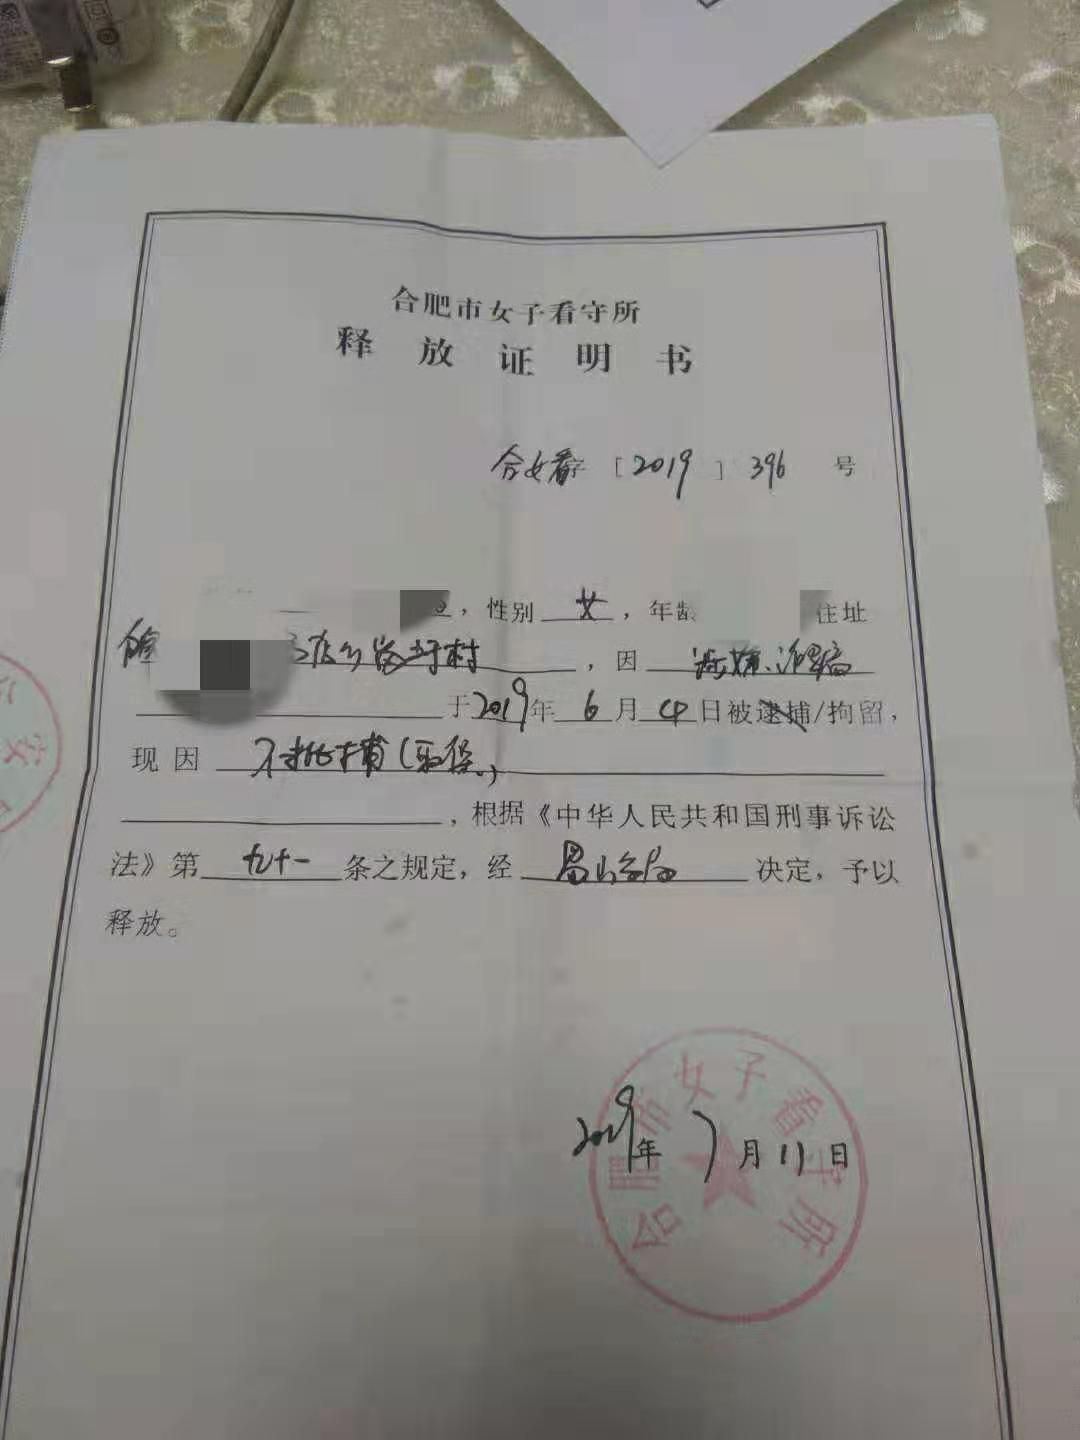 合肥市女子看守所
释放证明书
合女看字[2019]396号
，性别女，年龄 住址
村，因涉嫌
于2019年6月4日被逮捕/拘留，
现因不批捕(取保)
，根据《中华人民共和国刑事诉讼
法》第九十一条之规定，经蜀山分局决定，予以
释放。
2019年7月11日
合肥市女子看守所